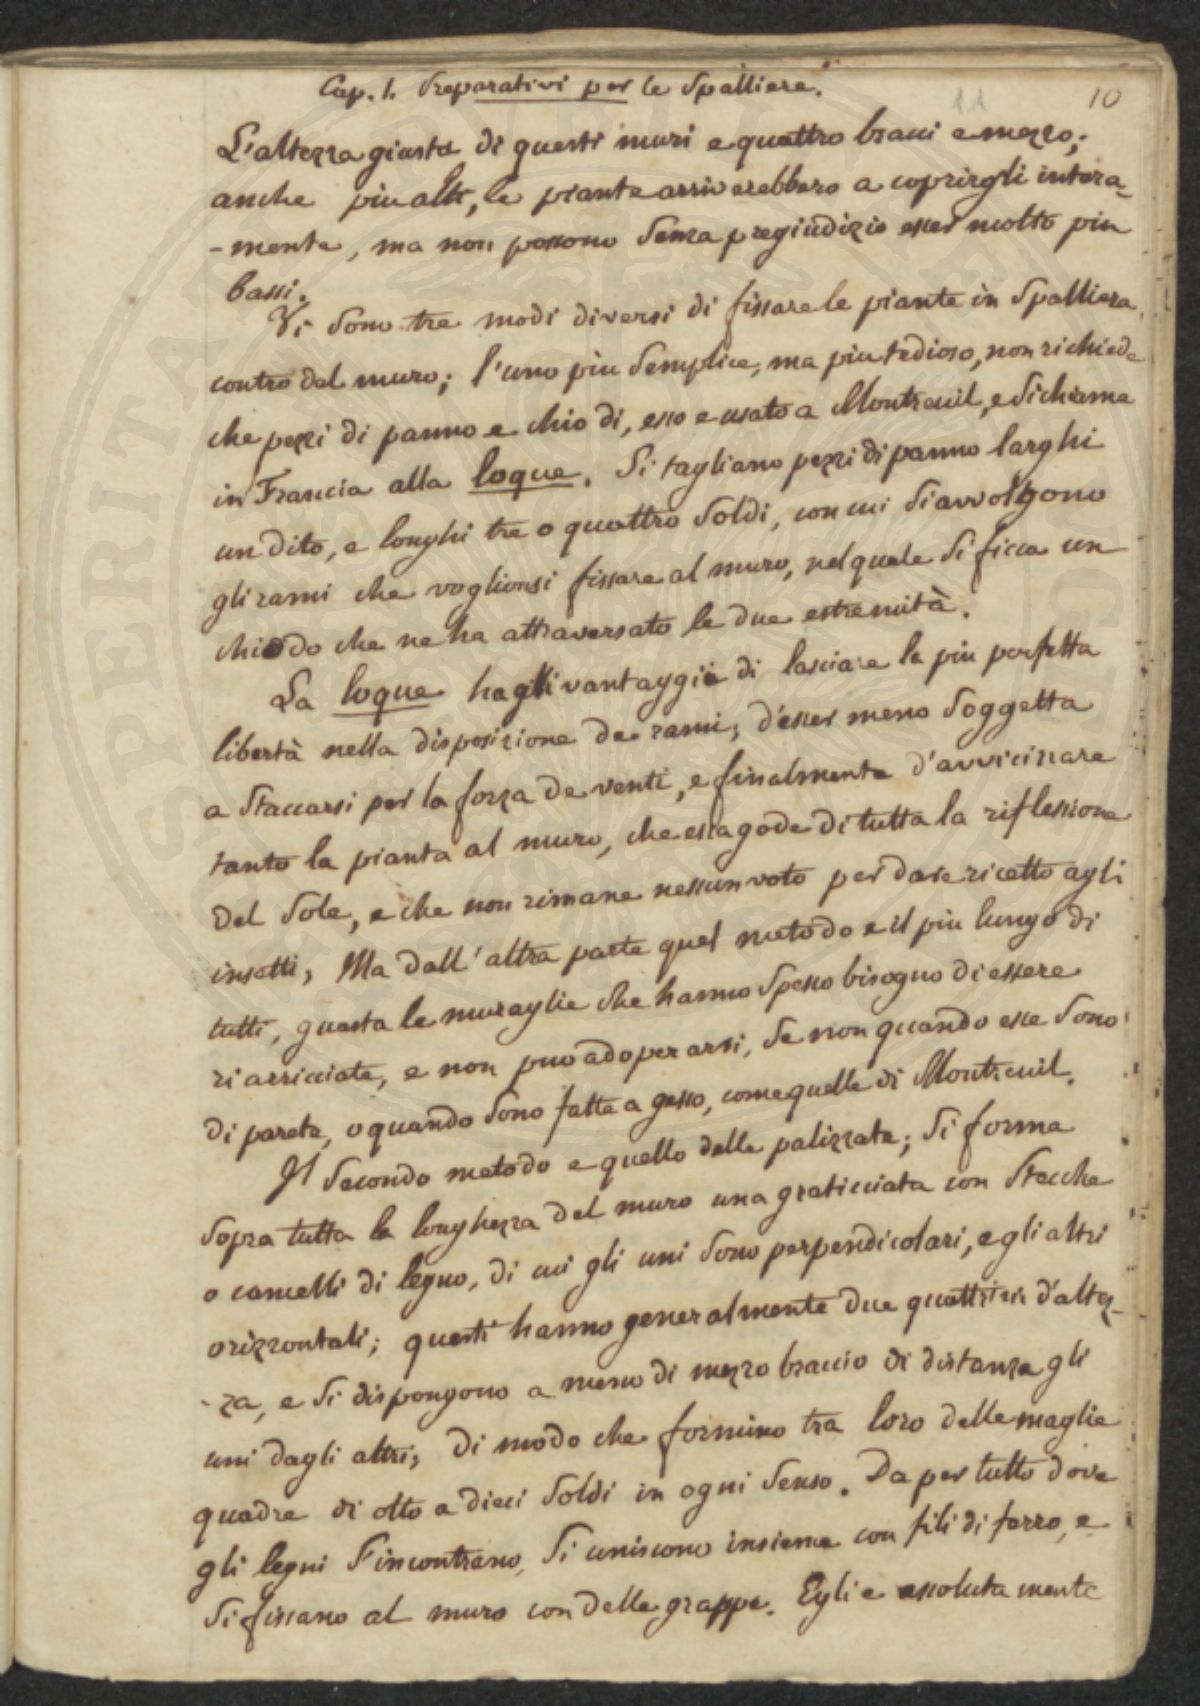 Cap. 1. Preparativi per le Spalliere.
11 10
L'altezza giusta di questi muri e quattro bracci e mezzo;
anche piu alti, le piante arriverebbero a coprirgli intera-
-mente, ma non possono senza pregiudizio esser molto piu
bassi.
Vi sono tre modi diversi di fissare le piante in Spalliera
contro del muro; l'uno piu semplice, ma piu tedioso, non richiede
che pezzi di panno e chiodi, esso e usato a Montreuil, e si chiama
in Francia alla loque. Si tagliano pezzi di panno larghi
un dito, e longhi tre o quattro soldi, con cui si avvolgono
gli rami che voglionsi fissare al muro, nel quale si ficca un
chiodo che ne ha attraversato le due estremità.
La loque ha gli vantaggi di lasciare la piu perfetta
libertà nella disposizione de rami; d'esser meno soggetta
a staccarsi per la forza de venti, e finalmente d'avvicinare
tanto la pianta al muro, che essa gode di tutta la riflessione
del Sole, e che non rimane nessun voto per dare ricetto agli
insetti; Ma dall'altra parte quel metodo e il piu lungo di
tutti, guasta le muraglie che hanno spesso bisogno di essere
riarricciate, e non puo adoperarsi, se non quando esse sono
di parete, o quando sono fatte a gesso, come quelle di Montreuil.
Il secondo metodo e quello delle palizzate; si forma
sopra tutta la longhezza del muro una graticciata con stecche
o cancelli di legno, di cui gli uni sono perpendicolari, e gli altri
orizzontali; questi hanno generalmente due quattrini d'altez-
-za, e si dispongono a meno di mezzo braccio di distanza gli
uni dagli altri, di modo che formino tra loro delle maglie
quadre di otto a dieci soldi in ogni senso. Da per tutto dove
gli legni s'incontrano, si uniscono insieme con fili di ferro, e
si fissano al muro con delle grappe. Egli e assolutamente